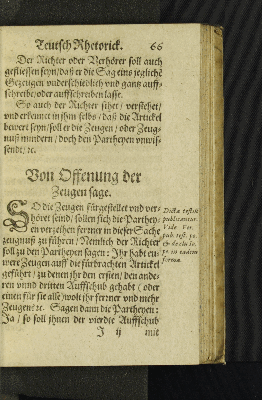 Teutsch Rhetorick. 66
Der Richter oder Verhörer soll auch
geflissen seyn / daß er die Sag eins jeglichē
Gezeugen vnderschiedlich vnd gantz auff-
schreibe / oder auffschreiben lasse.
So auch der Richter sihet / verstehet /
vnd erkennet in jhm selbs / daß die Artickel
bewert seyn / soll er die Zeugen / oder Zeug-
nuß mindern / doch den Partheyen vnwis-
send / ꝛc.
Von Offenung der
Zeugen sage.
SO die Zeugen fürgestellet vnd ver-
höret seind / sollen sich die Parthey-
en verzeihen ferner in dieser Sache
zeugnuß zu führen / Nemlich der Richter
soll zu den Partheyen sagen: Jhr habt eu-
were Zeugen auff die fürbrachten Artickel
geführt / zu denen jhr den ersten / den ande-
ren vnnd dritten Auffschub gehabt / oder
einen für sie alle / wolt jhr ferner vnd mehr
Zeugen? ꝛc. Sagen dann die Partheyen:
Ja / so soll jhnen der vierdte Auffschub
J ij mit
Dicta testiũ
publicantur.
Vide Ver.
pub. test.
in eadem
forma.